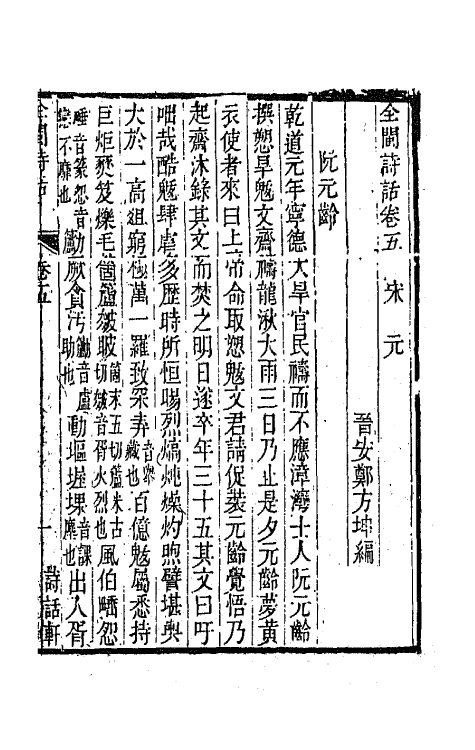 全閩詩話卷五　宋元
晉安鄭方坤編
阮元齡
乾道元年寧德大旱官民禱而不應漳灣士人阮元齡
撰愬旱魃文齋禱龍湫大雨三日乃止是夕元齡夢黃
衣使者來曰上帝命取愬魃文君請促裝元齡覺悟乃
起齋沐錄其文而焚之明日遂卒年三十五其文曰吁
咄哉酷魃肆虐多歷時所恒暘烈熇炖燥灼煦譬堪輿
大於一高組窮極萬一羅致罙弆音舉藏也百億魃屬悉持
巨炬焚笈爍毛箇䕡皴𤿎箇末五切䕡米古切皴音胥火烈也風伯皤怨
音篆怨音戀不靡也勯厥貪汚鋤音盧助也動塸堀堁音課塵也出入胥
全閩詩話　卷五　一　詩話軒